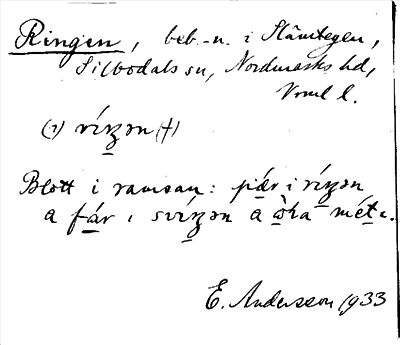 Ringen, beb.-n. i Slämtegen,
Silbodals sn, Nordmarks hd,
Vrml l.
(1) rı́rʒən (†)
Blott i ramsan: pǽr i rı́rʒən
a fár ı svı́rʒən a ὼka mét ı.
E. Andersson 1933